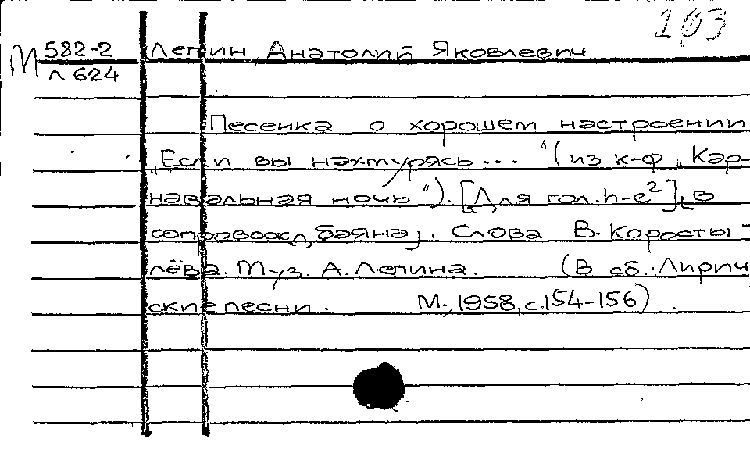 103
М 582-2 Лепин, Анатолий Яковлевич
Л 624
Песенка о хорошем настроении
„Если вы нахмурясь..." (из к-ф „Кар-
навальная ночь"). [Для гол. h-e²], в
сопровожд. баяна]. Слова В. Коросты-
лёва. Муз. А. Лепина. (В сб.: Лирич
ские песни. М., 1958, с. 154-156).